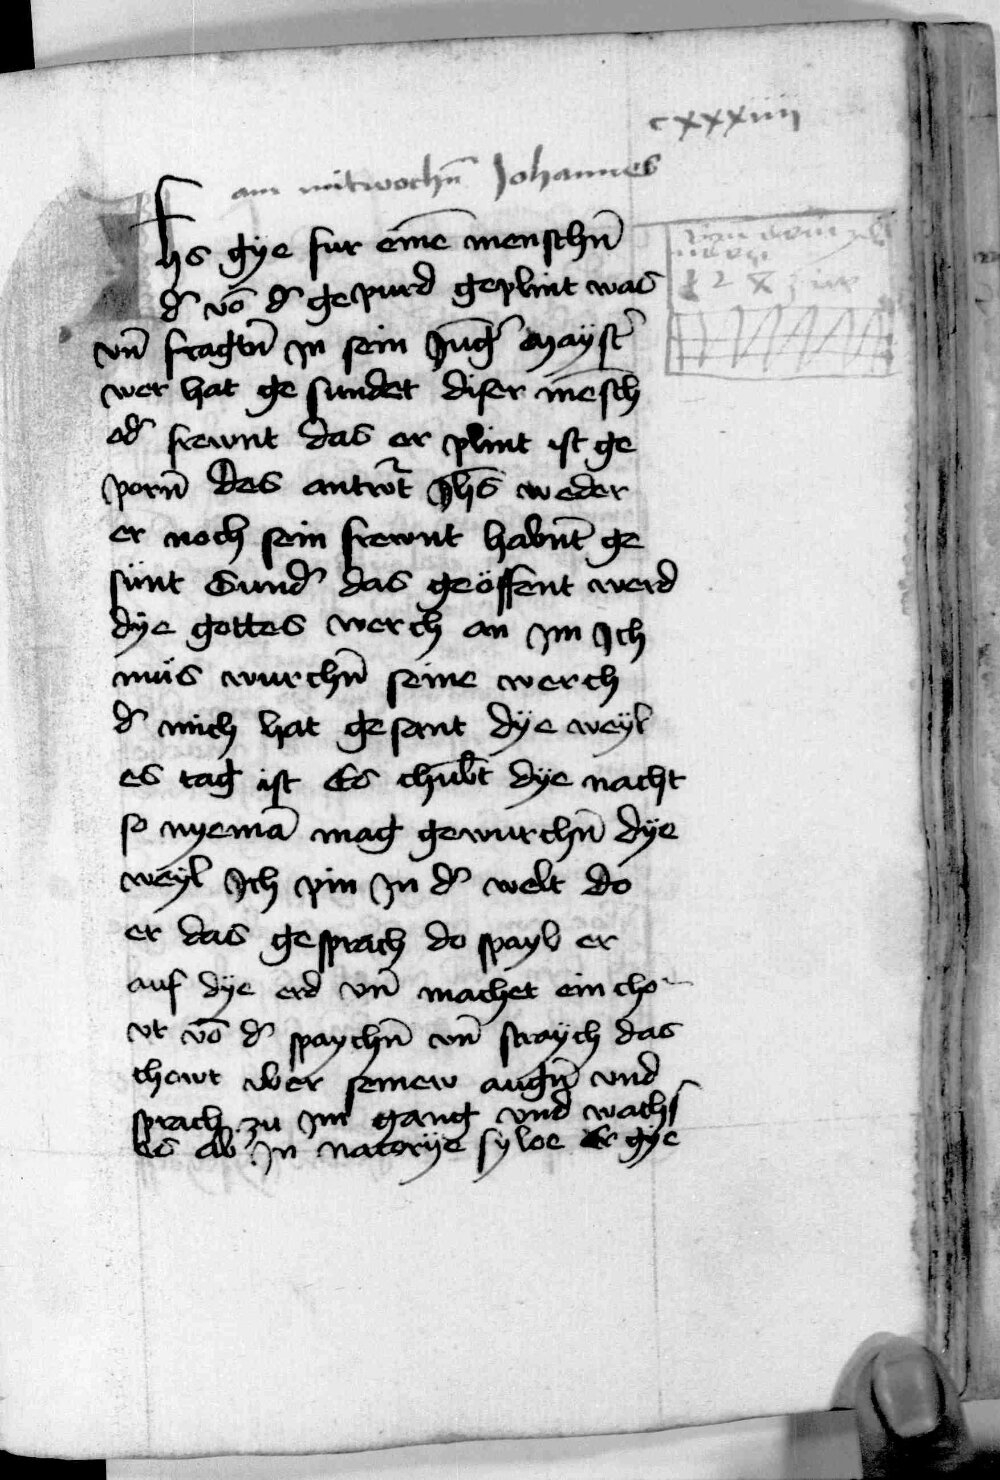 cxxxiiii
am mitwochn̄ Johannes
Jhs gye fur eīne menschn̄
d' vō d' gepurd geplint was
vn̄ fragtn̄ in sein Jūg' Mayst'
wer hat ge sundet diser mēsch
od' frewnt das er plint ist ge
porn̄ Des antw't Jhs̄ weder
er noch sein frewnt habnt̄ ge
sünt Sund' das geöffent werd
dÿe gottes werch an jm Jch
muͦs wurchn̄ seine werch
d' mich hat gesant dÿe weyl
es tag ist Es chūbt dÿe nacht
so nyemā mag gewurchn̄ dÿe
weyl Jch pin Jn d' welt do
er das gesprach do spayb er
auf dÿe erd vn̄ machet ein cho
vt vō d' spaychn̄ vn̄ straych das
chowt vber seinew augn̄ vnd
sprach zu jm gang vnd wachs
es ab Jn natorÿe syloe Er gÿe